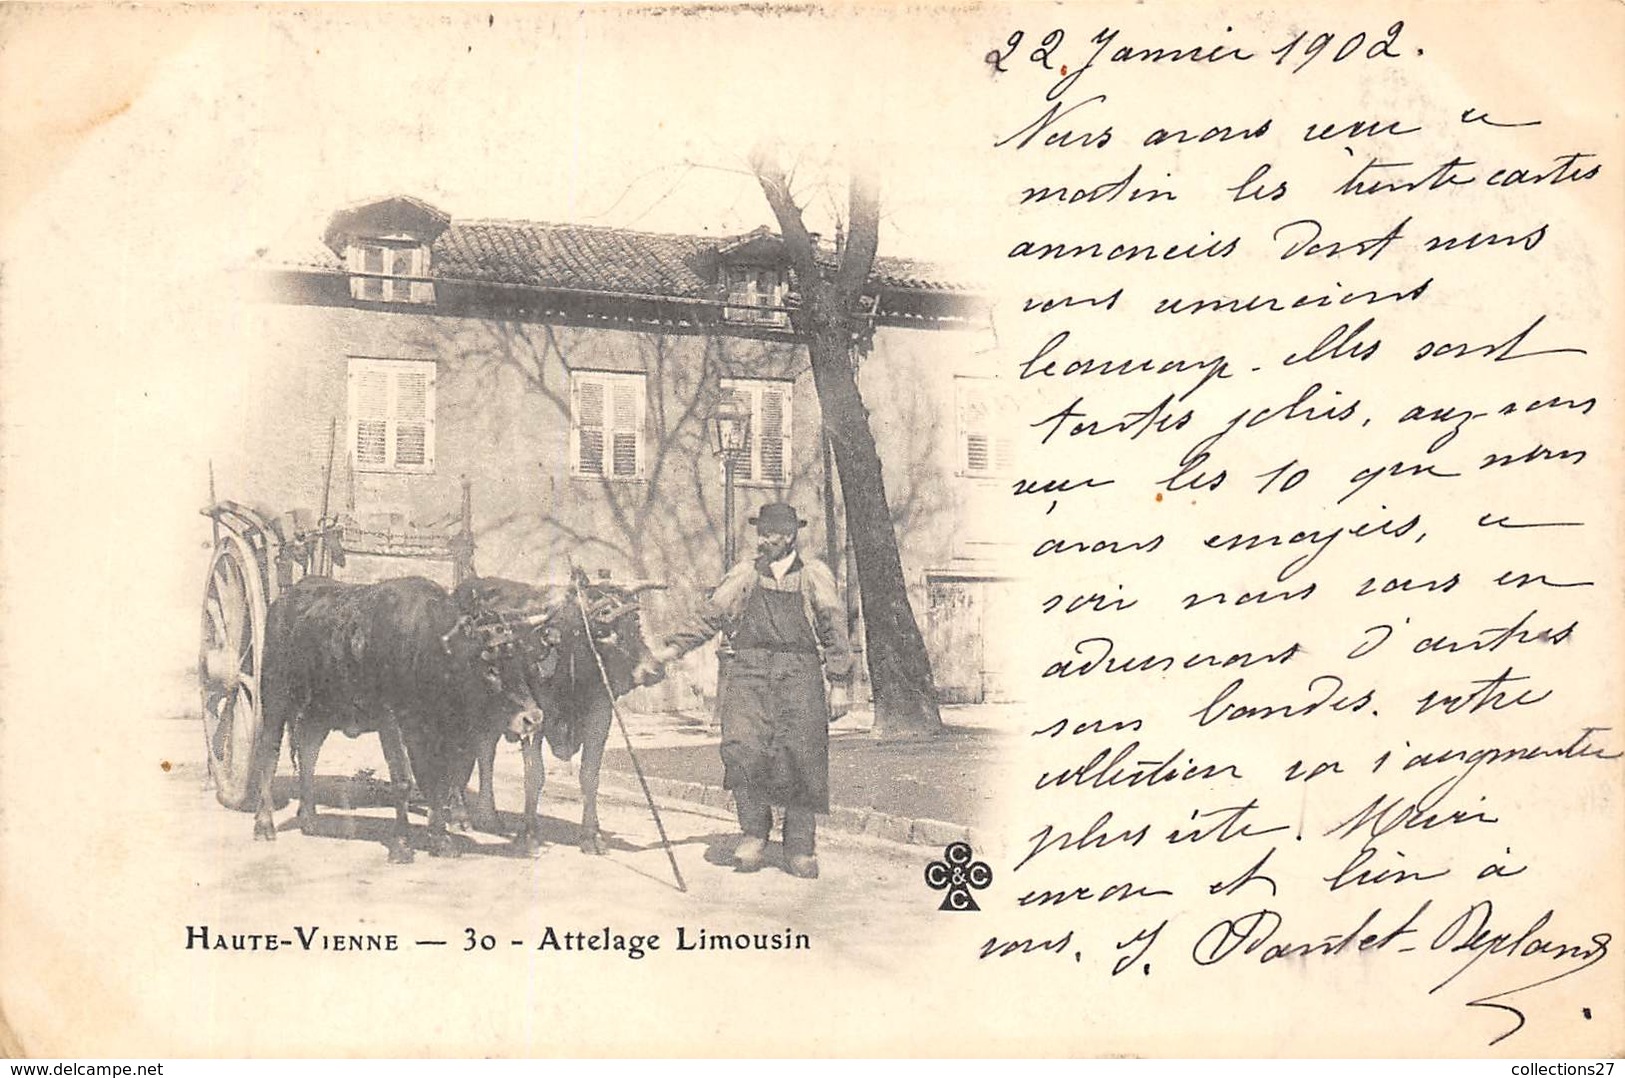 22 Janvier 1902.
Nous avons reçu ce
matin les trente cartes
annoncées dont nous
vous remercions
beaucoup. elles sont
toutes jolies, avez-vous
reçu les 10 que nous
avons envoyées, ce
soir nous vous en
adresserons d'autres
sous bandes. votre
collection va s'augmenter
plus vite. Merci
encore et bien à
vous. J.
C C & C C
HAUTE-VIENNE — 30 - Attelage Limousin
collections27